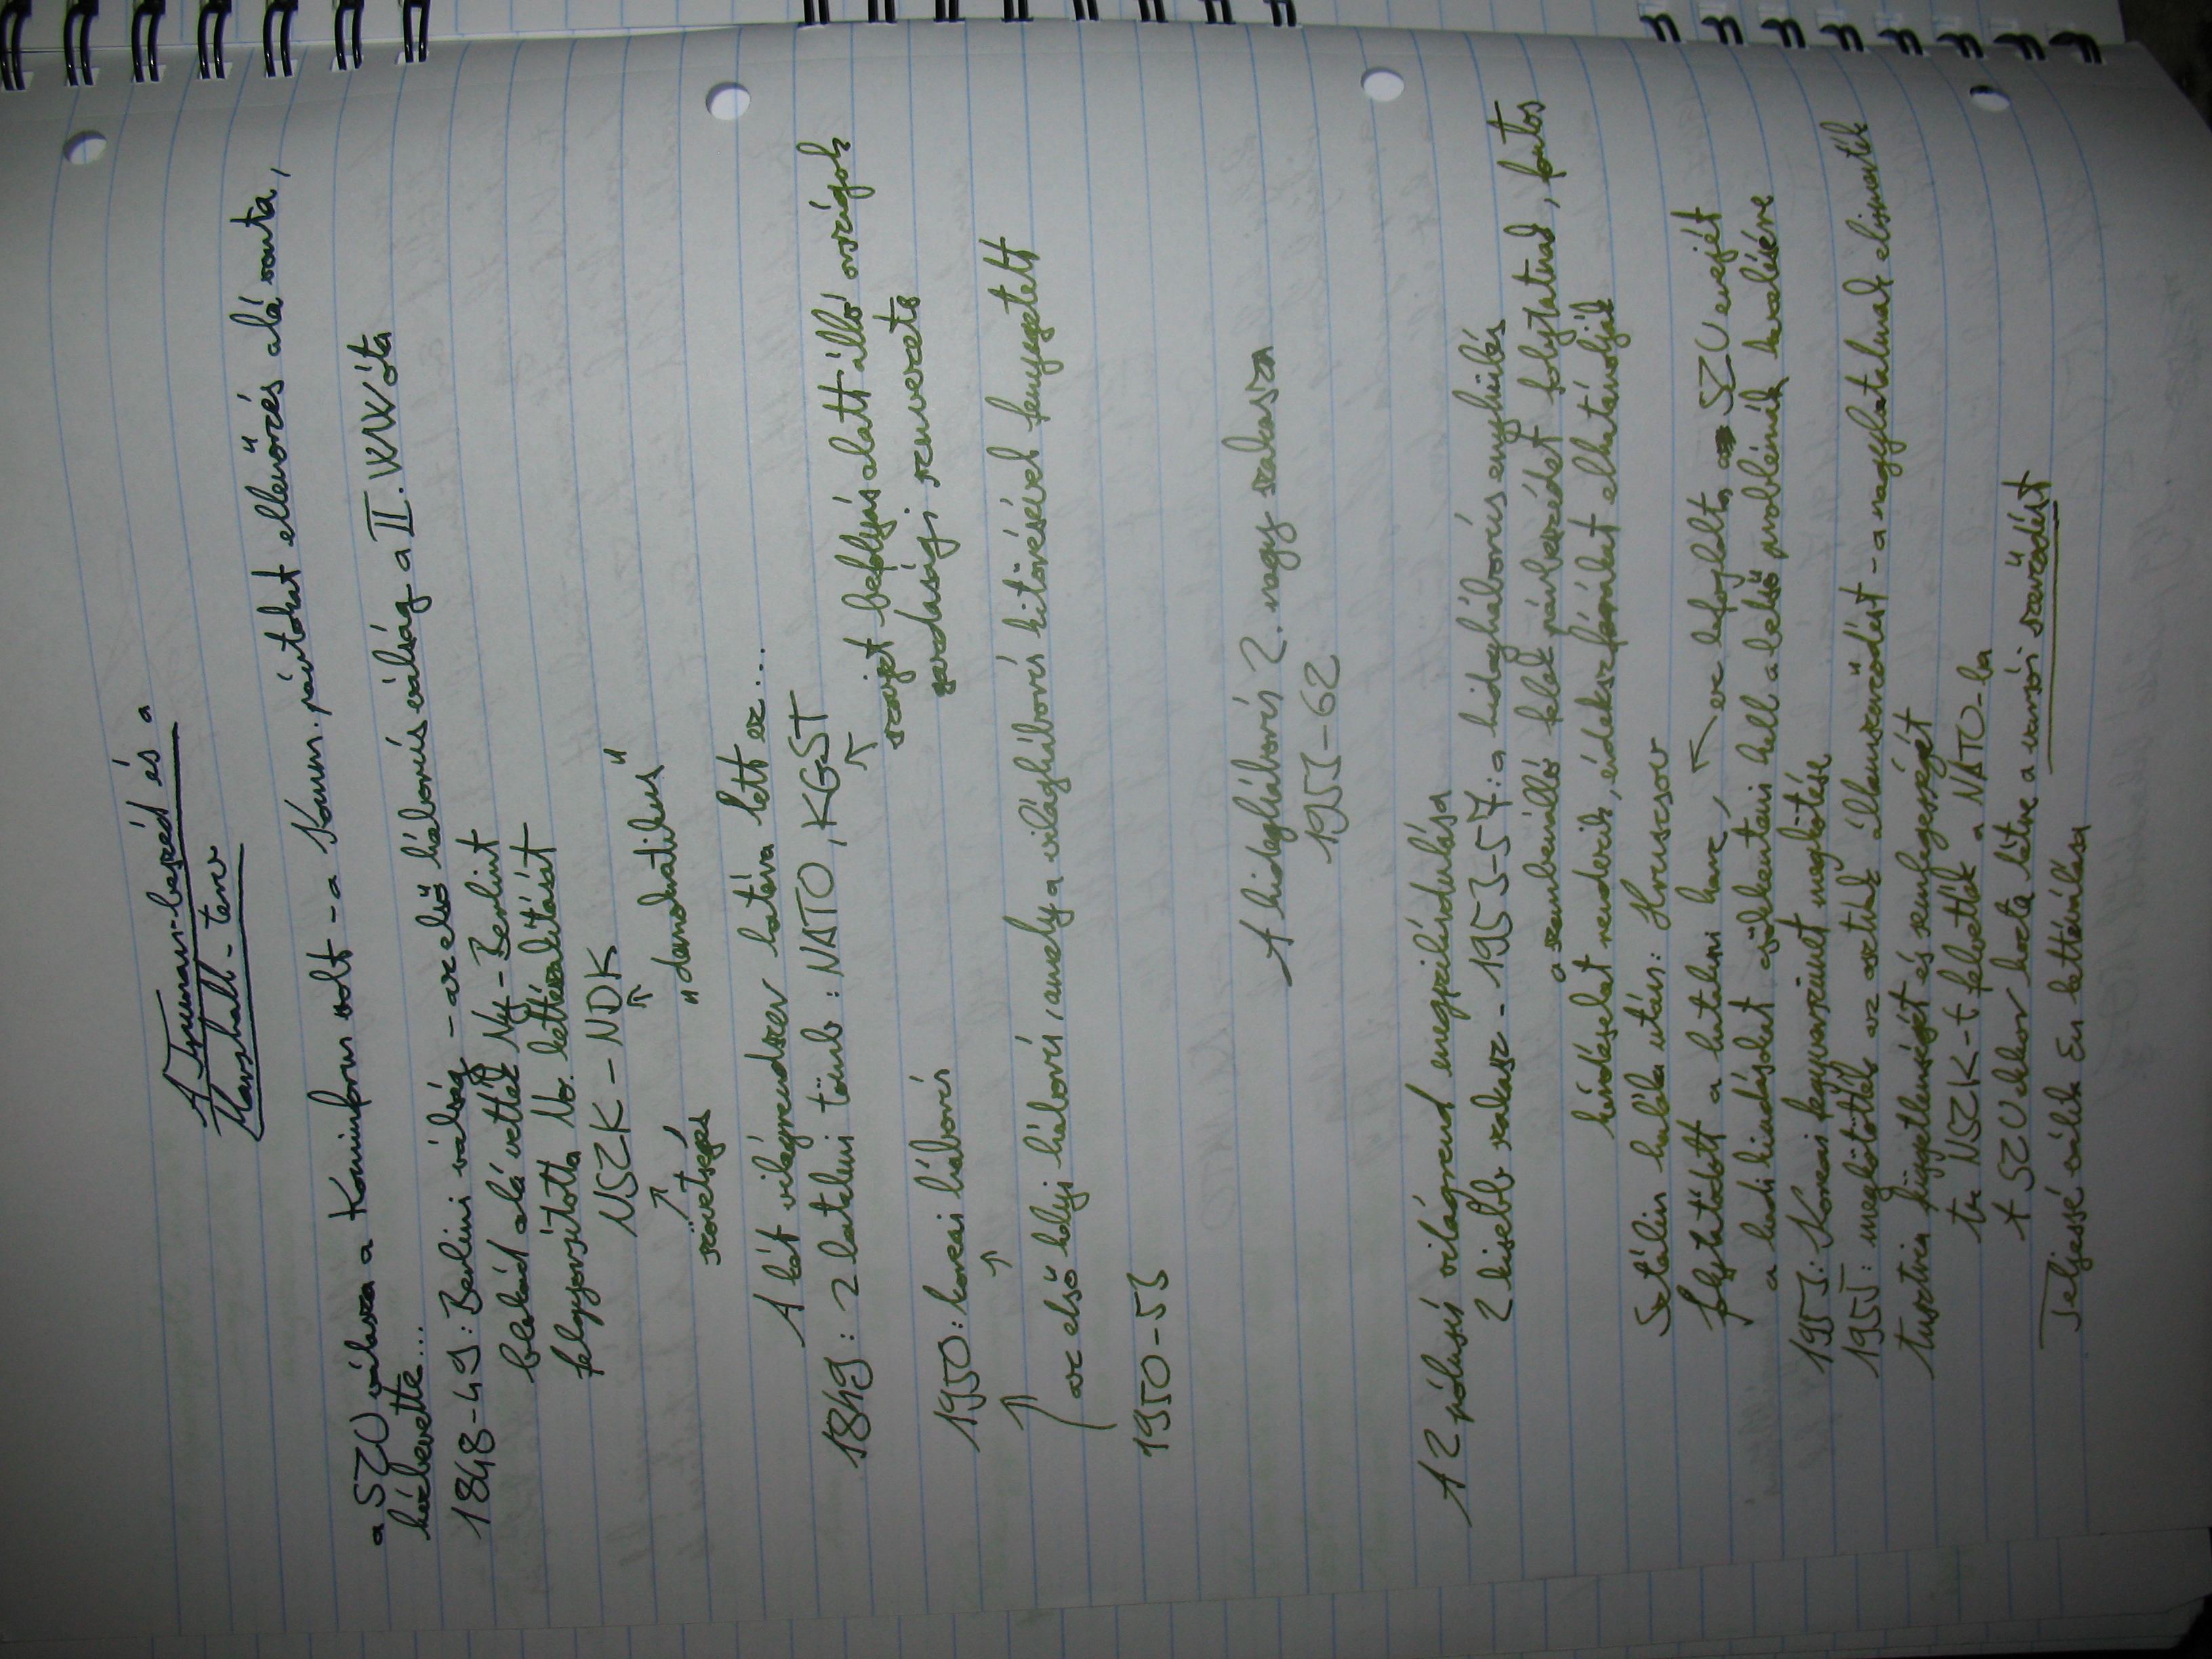 A Truman-beszéd és a
Marshall-terv
a SZU válasza a Kominform volt - a Komm. pártokat ellenőrzés alá vonta,
kézbevette...
1848-49: Berlini válság - az első háborús válság a II. VWóta
blokád alá vették Ny-Berlint
felgyorsította No. kettészakítását
NSZK - NDK
szövetséges
"demokratikus"
A két világrendszer határa lett ez...
1849: 2 hatalmi tömb: NATO, KGST
szovjet befolyás alatt álló országok
gazdasági szervezete
1950: koreai háború
az első helyi háború, amely a világháború kitörésével fenyegetett
1950-53
A hidegháború 2. nagy szakasza
1953-62
A 2 pólusú világrend megszilárdulása
2 kisebb szakasz - 1953-57: a hidegháborús enyhülés
a szembenálló felek párbeszédet folytatnak, fontos
kérdéseket rendezik, érdekszférákat elhatárolják
Sztálin halála után: Hruscsov
folytatódott a hatalmi harc, ez lefoglalta a SZU erejét
a hadi kiadásokat csökkenteni kell a belső problémák kezelésére
1953: Koreai fegyverszünet megkötése
1955: megkötötték az osztrák államszerződést - a nagyhatalmak elismerték
Ausztria függetlenségét és semlegességét
Az NSZK-t felvették a NATO-ba
A SZU ekkor hozta létre a varsói szerződést
Teljessé válik Eu kettéválása